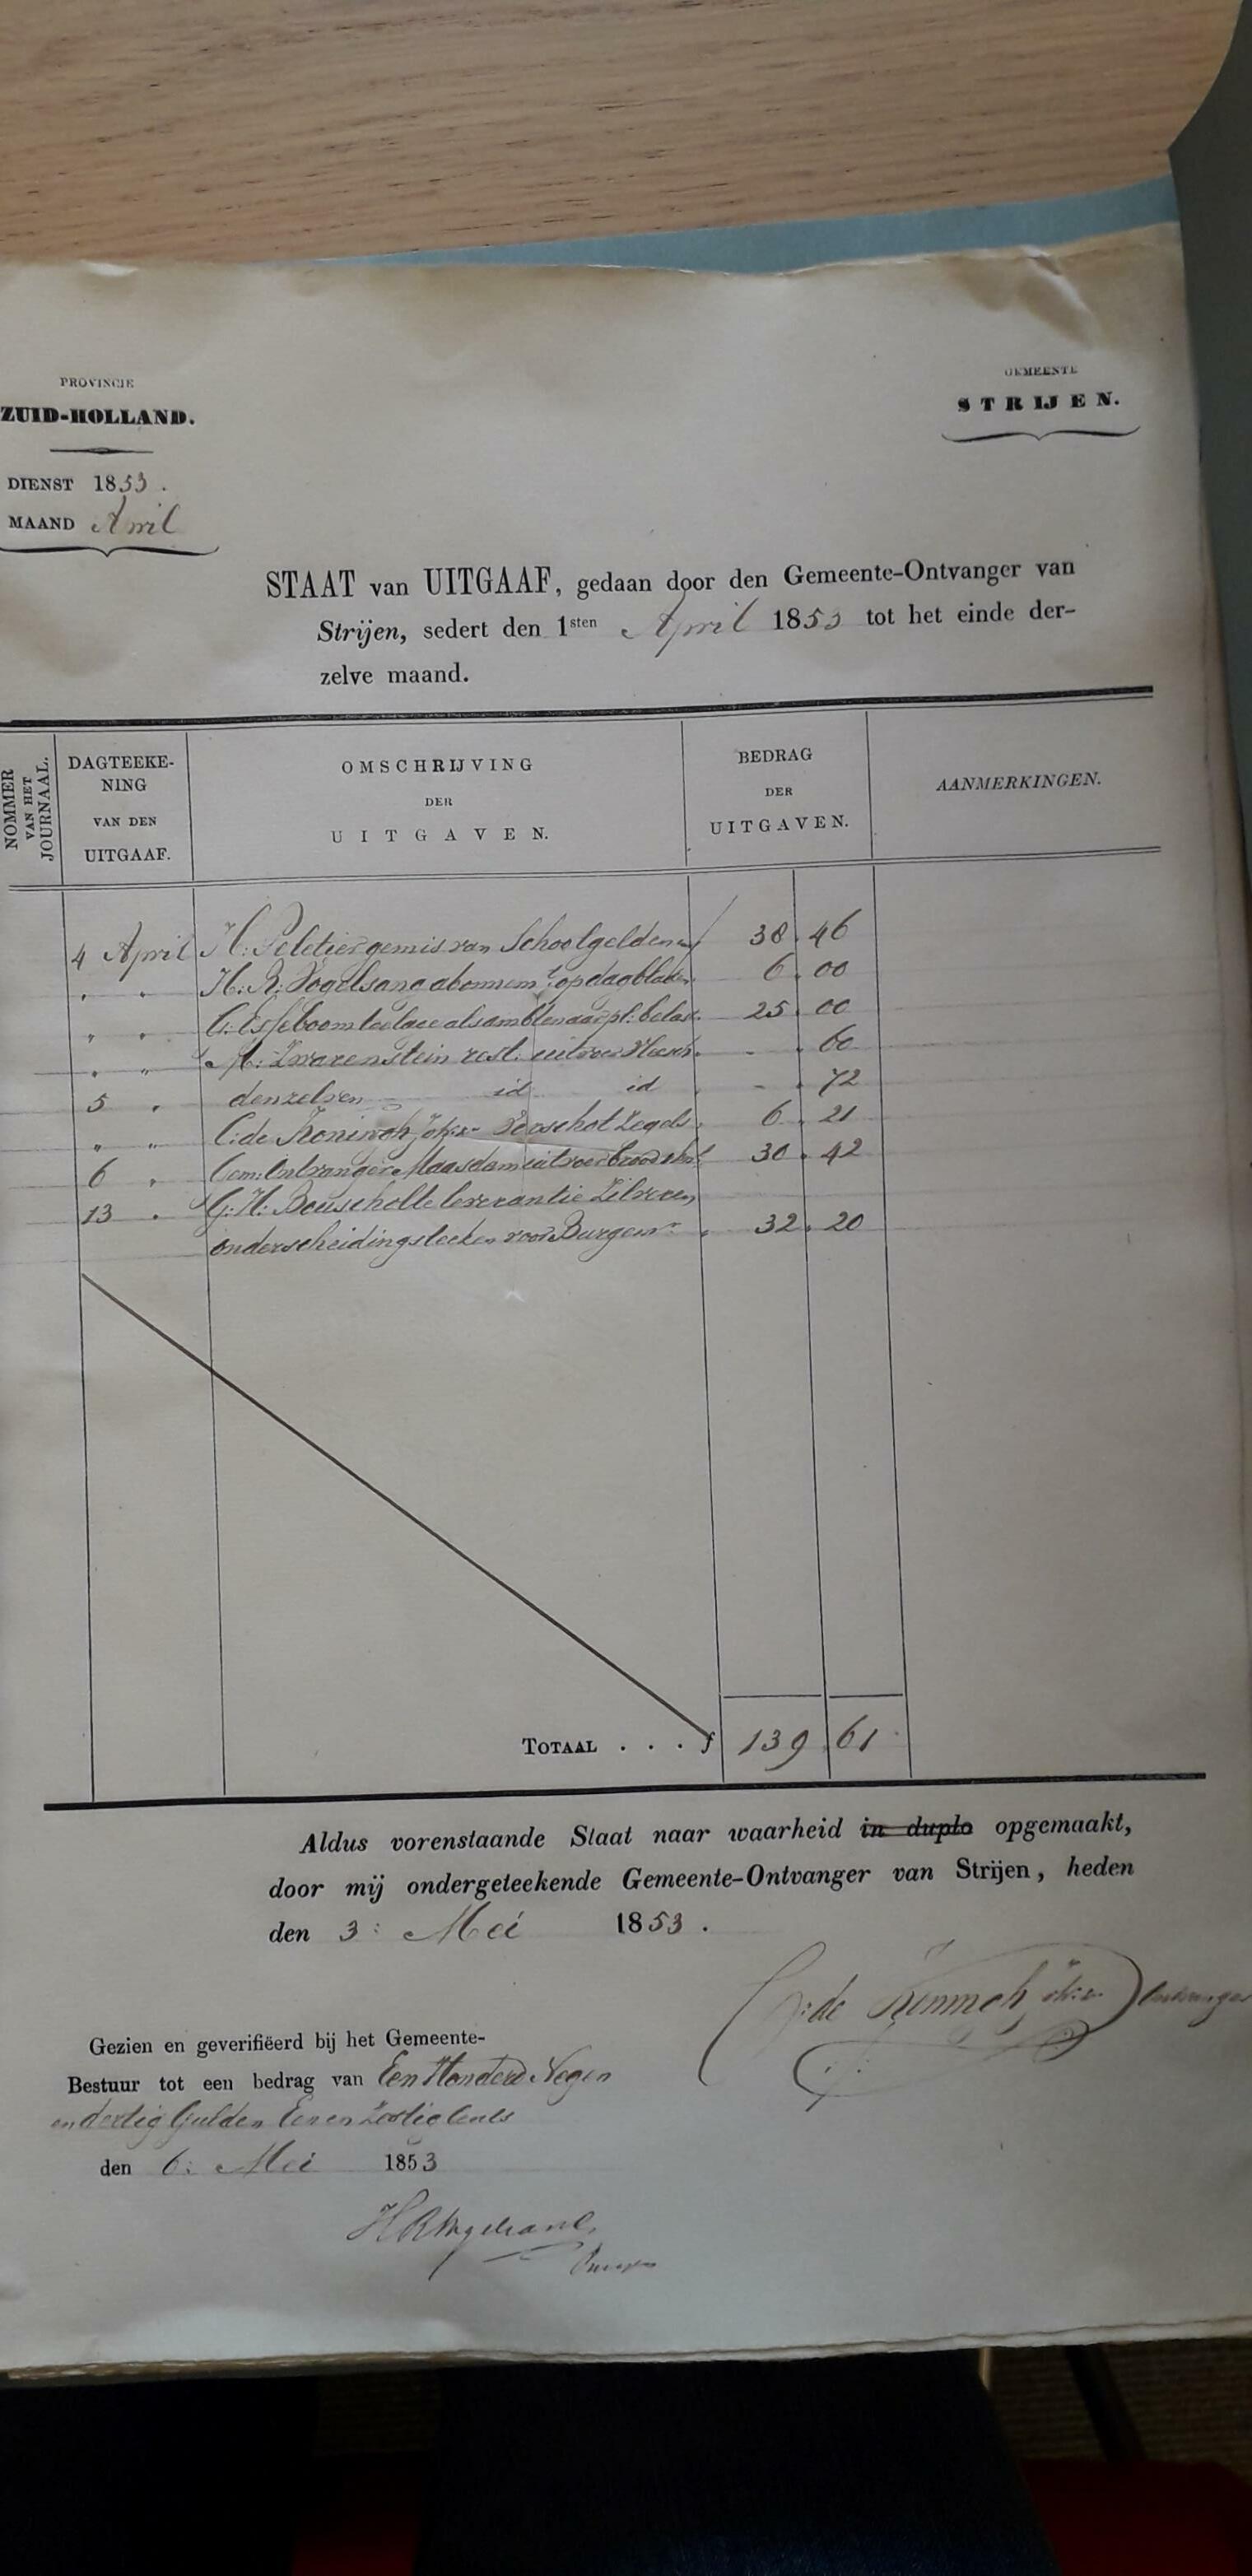 PROVINCIE
ZUID-HOLLAND.
GEMEENTE
STRIJEN.
DIENST 1853.
MAAND April
STAAT van UITGAAF, gedaan door den Gemeente-Ontvanger van
Strijen, sedert den 1sten April 1853 tot het einde der-
zelve maand.
NOMMER VAN HET JOURNAAL.
DAGTEEKE-
NING
VAN DEN
UITGAAF.
OMSCHRIJVING
DER
UITGAVEN.
BEDRAG
DER
UITGAVEN.
AANMERKINGEN.
4 April H: Peletier gemis van Schoolgelden 38. 46
" " H: R: Vogelsang abonnemt op dagbladen 6. 00
" " als ambtenaar pl: belast. 25. 00
" " Zwarenstein rest: uitvoer - . 60
5 " denzelven id id - . 72
" " C: de Koningh Voorschot Zegels 6. 21
6 " Gem: Ontvanger Maasdam uitvoer 30. 42
13 " G: H: Beuscholte leverantie Zilveren
onderscheidingsteeken voor Burgemr 32. 20
TOTAAL . . . f 139 61
Aldus vorenstaande Staat naar waarheid in duplo opgemaakt,
door mij ondergeteekende Gemeente-Ontvanger van Strijen, heden
den 3: Mei 1853.
C: de Koningh Ontvanger
Gezien en geverifiëerd bij het Gemeente-
Bestuur tot een bedrag van Een Honderd Negen
en dertig Gulden Een en Zestig Cents
den 6: Mei 1853